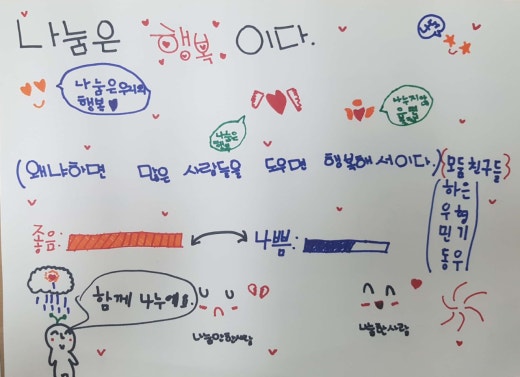 나눔은 행복 이다.
나눔
나눔은 우리의
행복
나누지않
으면
불행
나눔은
행복
(왜냐하면 많은 사람들을 도우면 행복해서이다.)
{모둠친구들}
하은
우형
민기
동우
좋음:
나쁨:
함께 나누에요.
나눔안한사람
나눔한사람